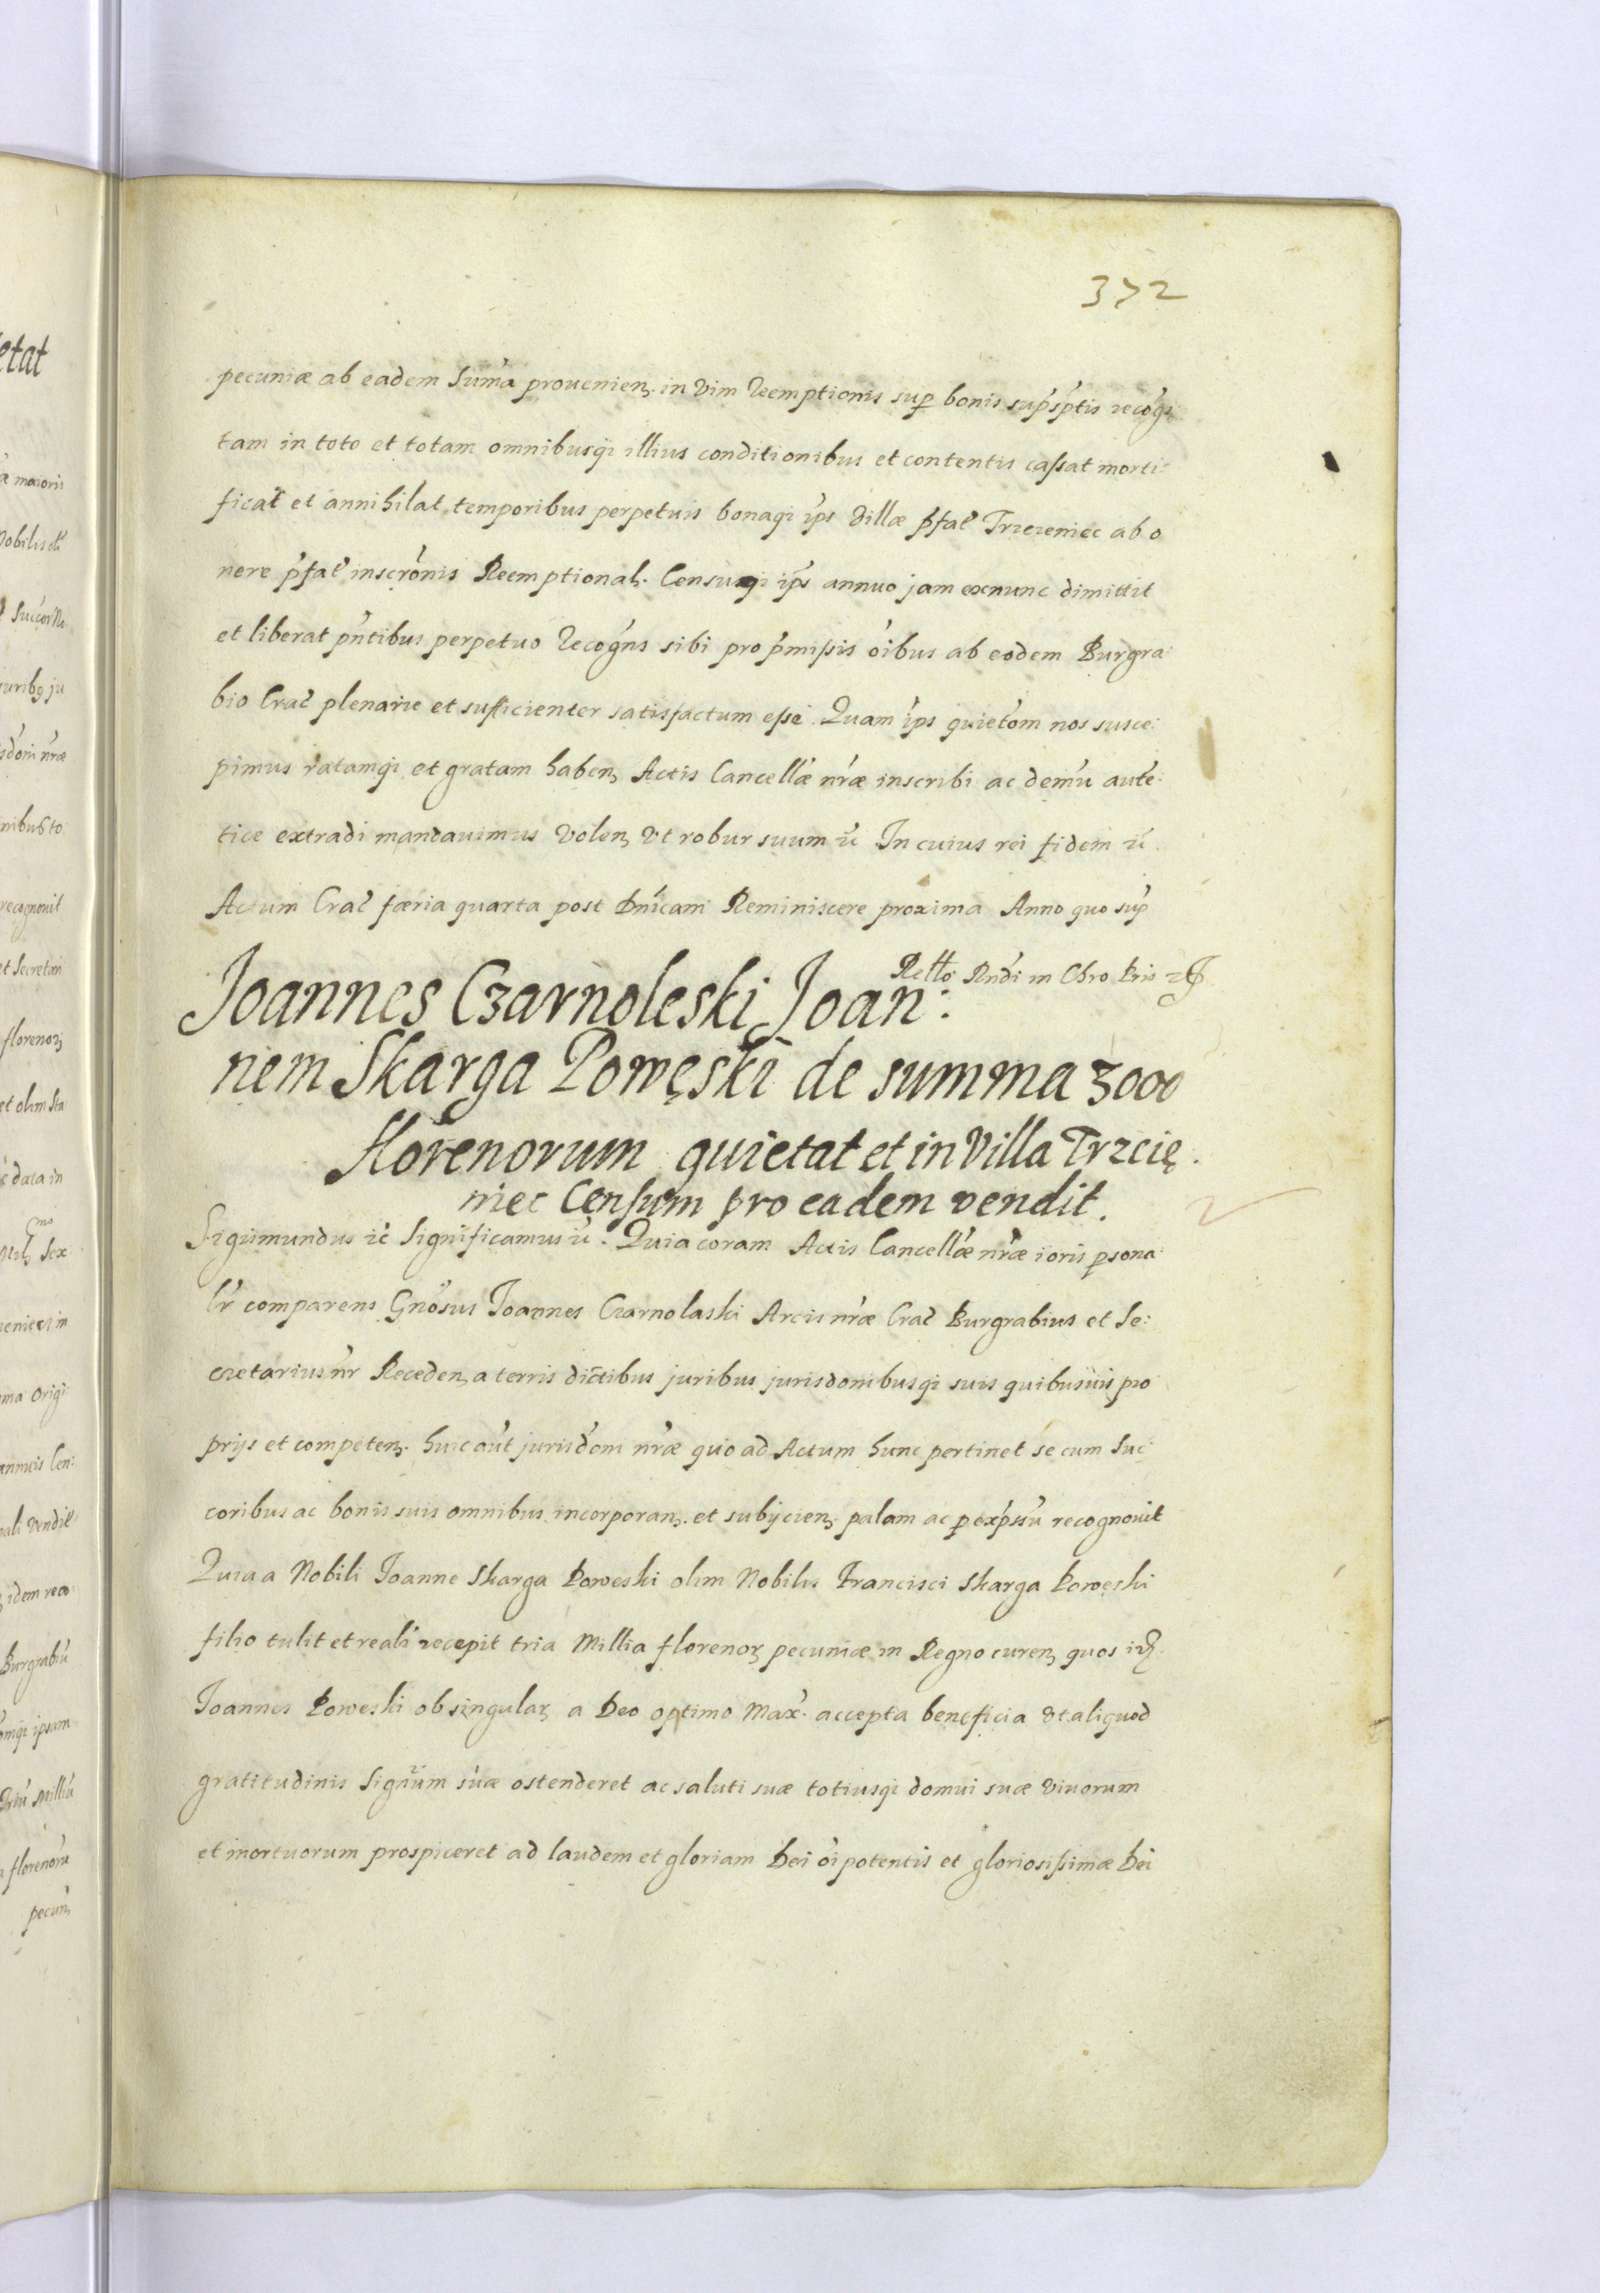 372
pecuniæ ab eadem Suma prouenien. in Vim Reemptionis sup bonis supsptis recog
tam in toto et totam omnibusqi illius conditionibus et contentis caſsat morti:
ficat et annihilat temporibus perpetuis bonaqi ips Villæ pfat Trzcieniec ab o
nere pfat inscronis Reemptional. Censuqi ips annuo jam exnunc dimittit
et liberat pntibus perpetuo Recogns sibi pro pmiſsis oibus ab eodem Burgra:
bio Crac plenarie et sufficienter satisfactum eſse. Quam ips quietom nos susce:
pimus ratamqi et gratam haben Actis Cancellæ nræ inscribi ac demu aute:
tice extradi mandauimus Volen Vt robur suum ic In cuius rei fidem ic
Actum Crac færia quarta post Dnicam Reminiscere proxima Anno quo sup
Retto Rndi in Chro Pris
Joannes Czarnoleski Joan:
nem Skarga Powęski de summa 3000
florenorum quietat et in Villa Trzcię.
niec Cenſum pro eadem vendit.
Sigismundus ic Significamus ic. Quia coram Actis Cancellæ nræ ioris psona:
lr comparens Gnosus Joannes Czarnolaski Arcis nræ Crac Burgrabius et Se:
cretarius nr Receden a terris dictibus juribus jurisdonibusqi suis quibusuis pro
prijs et competen. huic aut jurisdom nræ quo ad Actum hunc pertinet se cum Suc:
coribus ac bonis suis omnibus incorporan. et subijcien palam ac p expssu recognouit
Quia a Nobili Joanne Skarga Poweski olim Nobilis Francisci Skarga Poweski
filio tulit et reali recepit tria Millia florenoꝝ pecuniæ in Regno curen quos id
Joannes Poweski ob singulaꝝ a Deo optimo Max. accepta beneficia Vt aliquod
gratitudinis Signum suæ ostenderet ac saluti suæ totiusqi domui suæ viuorum
et mortuorum prospiceret ad laudem et gloriam Dei oipotentis et gloriosiſsimæ Dei